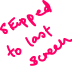 skipped
to last
screen